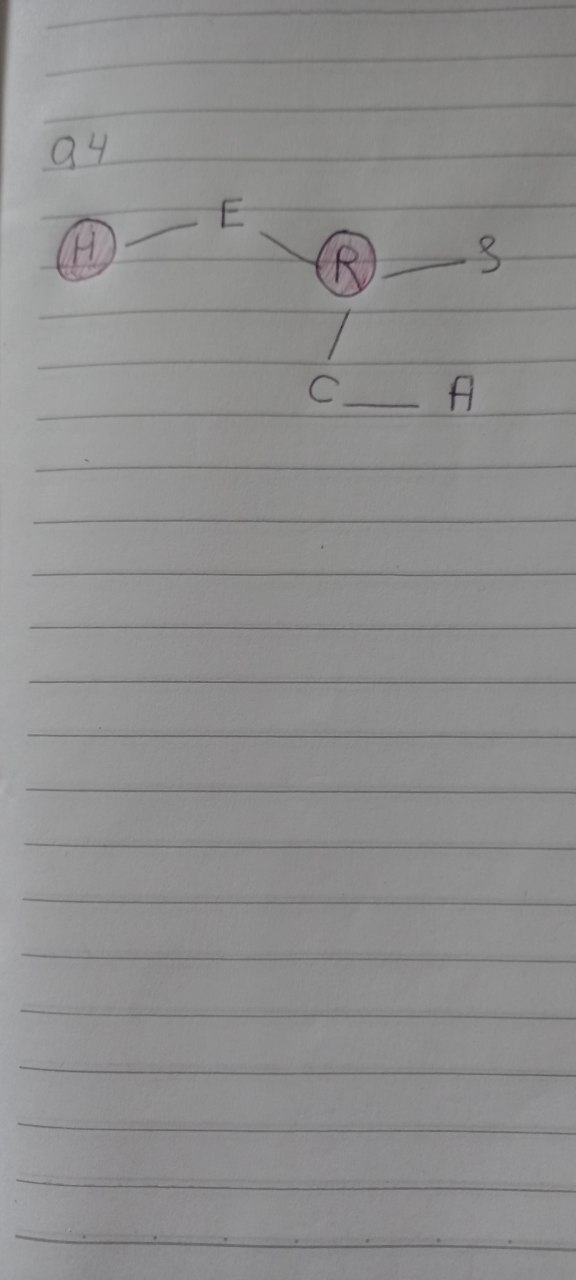 Q4
H E R S
C A